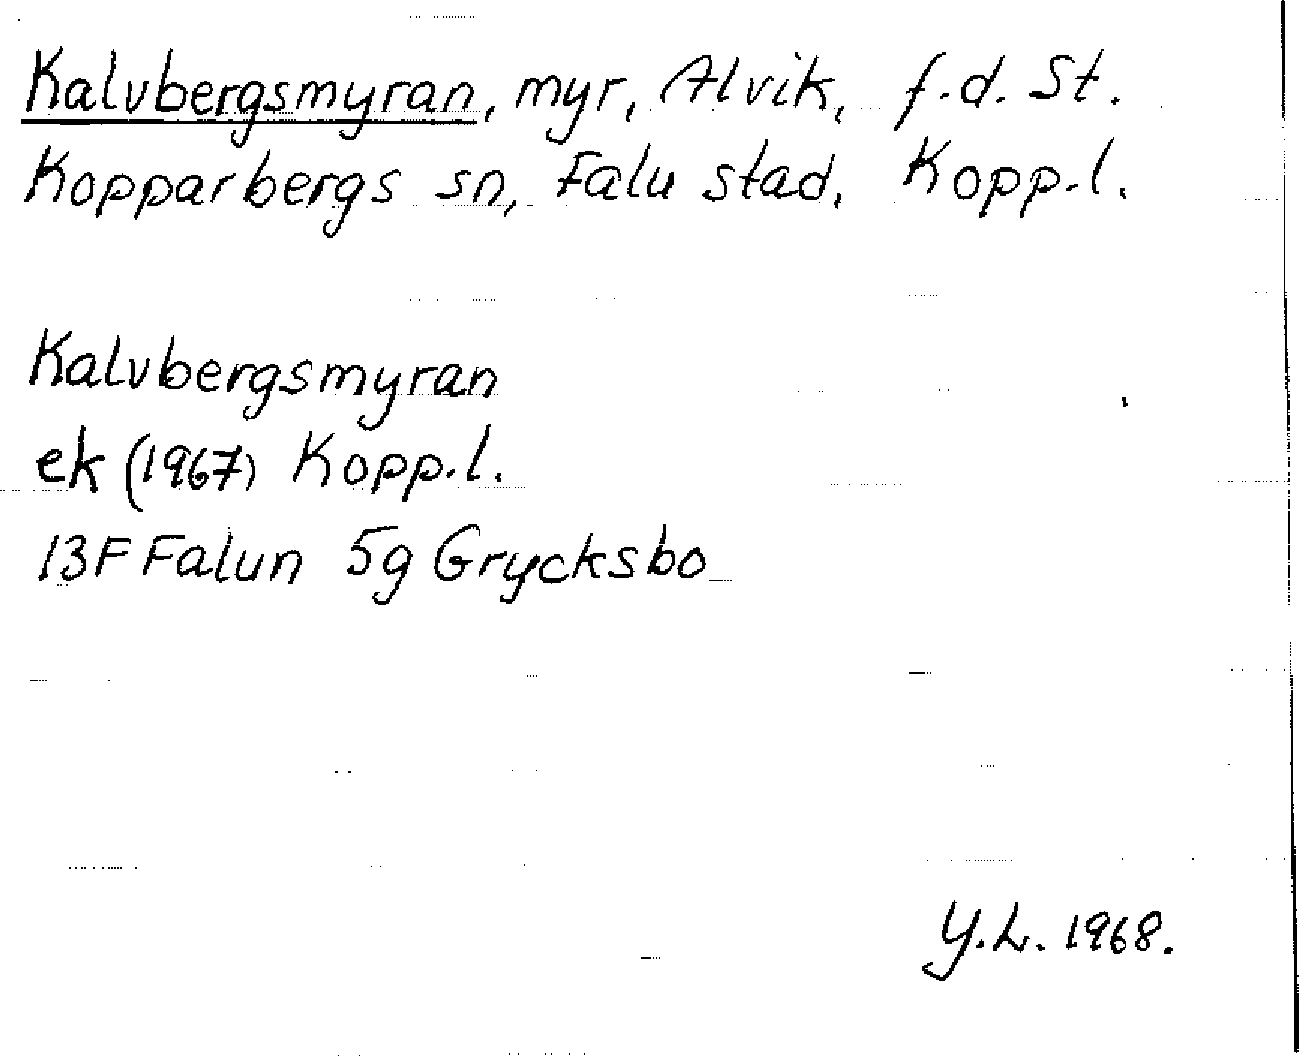 Kalvbergsmyran, myr, Alvik, f.d. St.
Kopparbergs sn, Falu stad, Kopp.l.
Kalvbergsmyran
ek (1967) Kopp.l.
13F Falun 5g Grycksbo
Y.L. 1968.